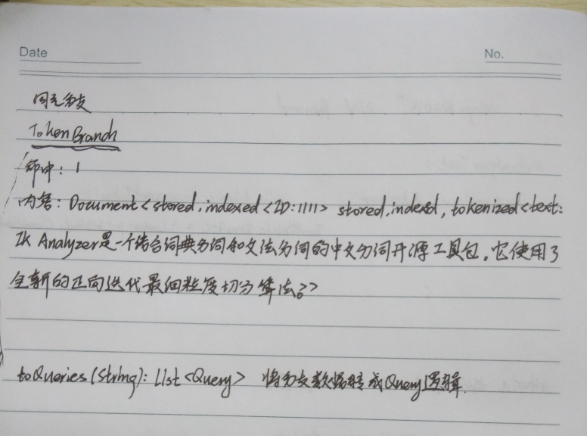 Date No.
TokenBranch
命中：1
内容：Document<stored,indexed<ID:1111> stored,indexed,tokenized<text:
IK Analyzer是一个结合词典分词和文法分词的中文分词开源工具包,它使用了
全新的正向迭代最细粒度切分算法。>>
toQueries(String): List<Query> 将分支数据转成Query逻辑.